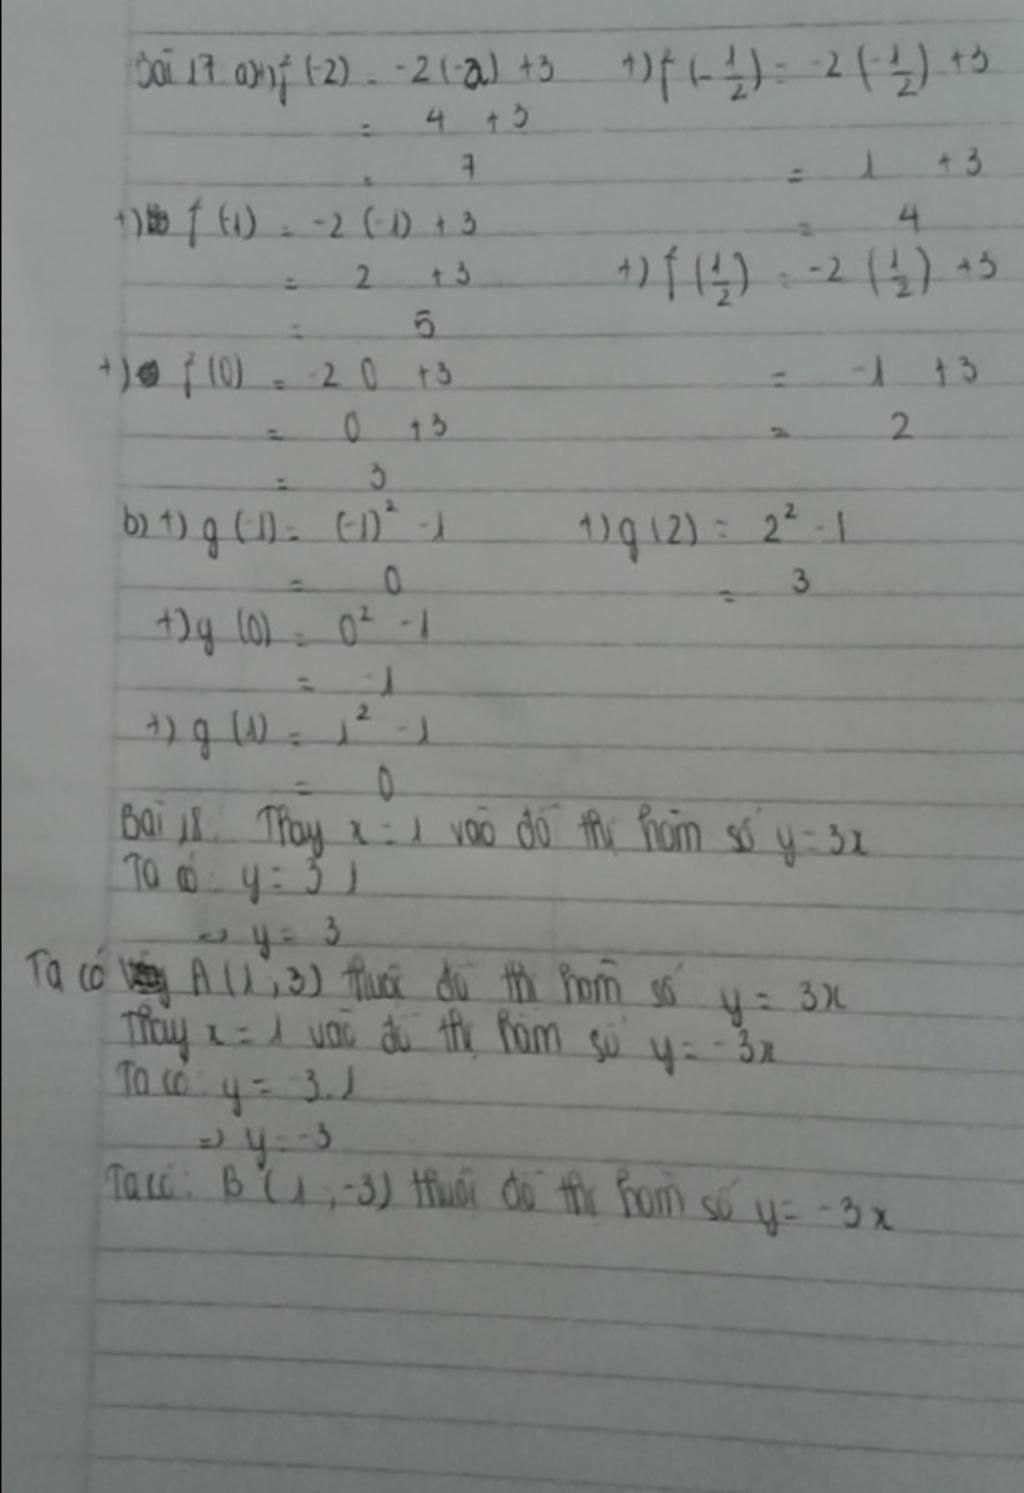 Bài 17 a) +) f(-2) = -2(-2) + 3 +) f(-1/2) = -2(-1/2) + 3
= 4 + 3
= 7 = 1 + 3
+) f(-1) = -2(-1) + 3 = 4
= 2 + 3 +) f(1/2) = -2(1/2) + 3
= 5
+) f(0) = -2 0 + 3 = -1 + 3
= 0 + 3 = 2
= 3
b) +) g(-1) = (-1)² - 1 +) g(2) = 2² - 1
= 0 = 3
+) g(0) = 0² - 1
= -1
+) g(1) = 1² - 1
= 0
Bài 18. Thay x = 1 vào đồ thị hàm số y = 3x
Ta có: y = 3 1
=> y = 3
Ta có A(1; 3) thuộc đồ thị hàm số y = 3x
Thay x = 1 vào đồ thị hàm số y = -3x
Ta có: y = -3.1
=> y = -3
Ta có: B(1; -3) thuộc đồ thị hàm số y = -3x